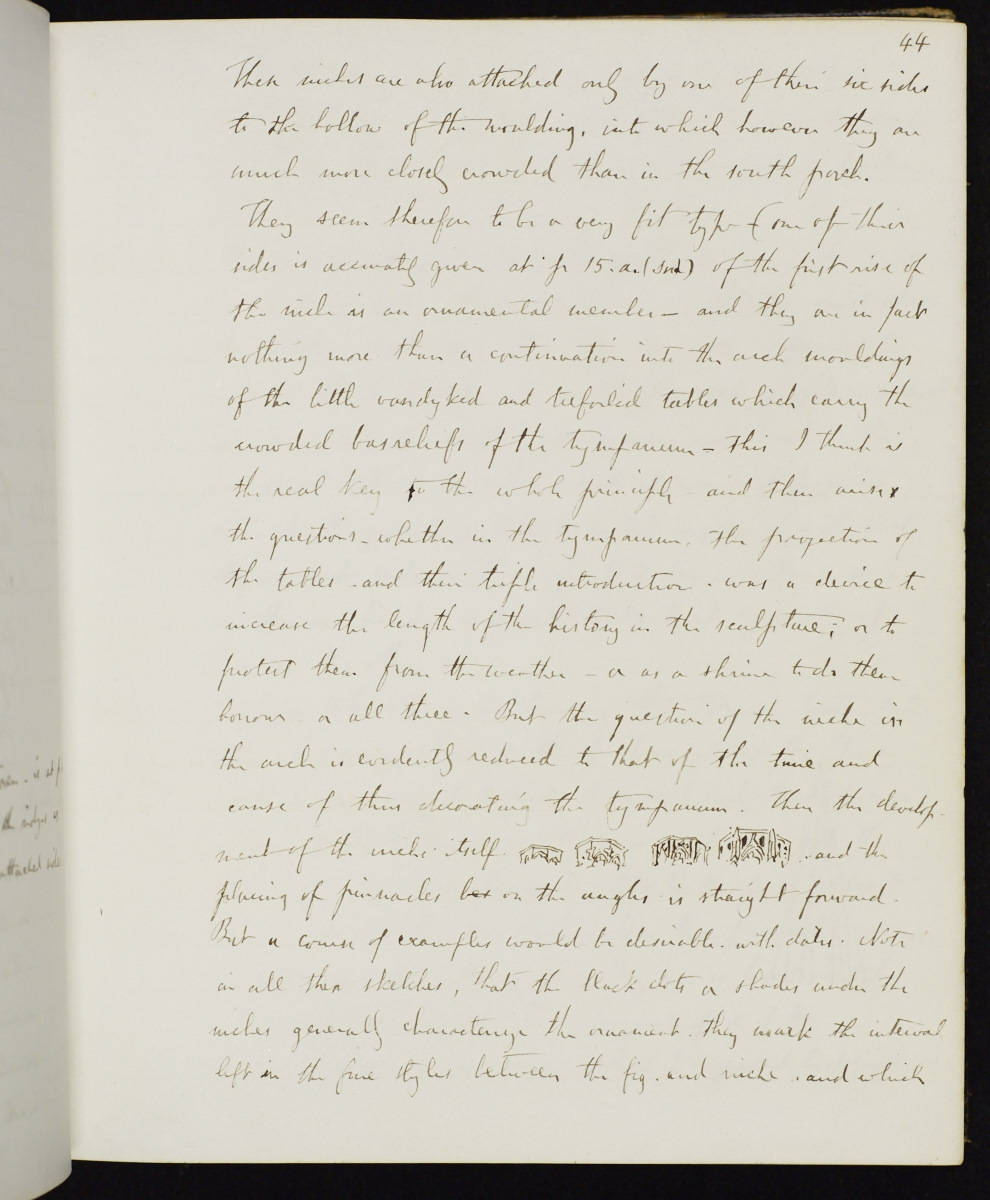 44
These niches are also attached only by one of their six sides
to the hollow of the moulding, into which however they are
much more closely crowded than in the south porch.
They seem therefore to be a very fit type (one of their
sides is accurately given at p 15.a.) of the first rise of
the niche as an ornamental member - and they are in fact
nothing more than a continuation into the arch mouldings
of the little vandyked and trefoiled tables which carry the
crowded basreliefs of the tympanum - this I think is
the real key to the whole principle - and then arises
the questions - whether in the tympanum, the projection of
the tables - and their triple introduction - was a device to
increase the length of the history in the sculpture; or to
protect them from the weather - or as a shrine to do them
honour or all three - But the question of the niche in
the arch is evidently reduced to that of the time and
cause of thus decorating the tympanum. Then the develop-
ment of the niche itself and the
placing of pinnacles on the angles is straight forward.
But a course of examples would be desirable. with dates. Note
in all these sketches, that the black dots or shades under the
niches generally characterize the ornament. they mark the interval
left in the fine styles between the fig. and niche. and which